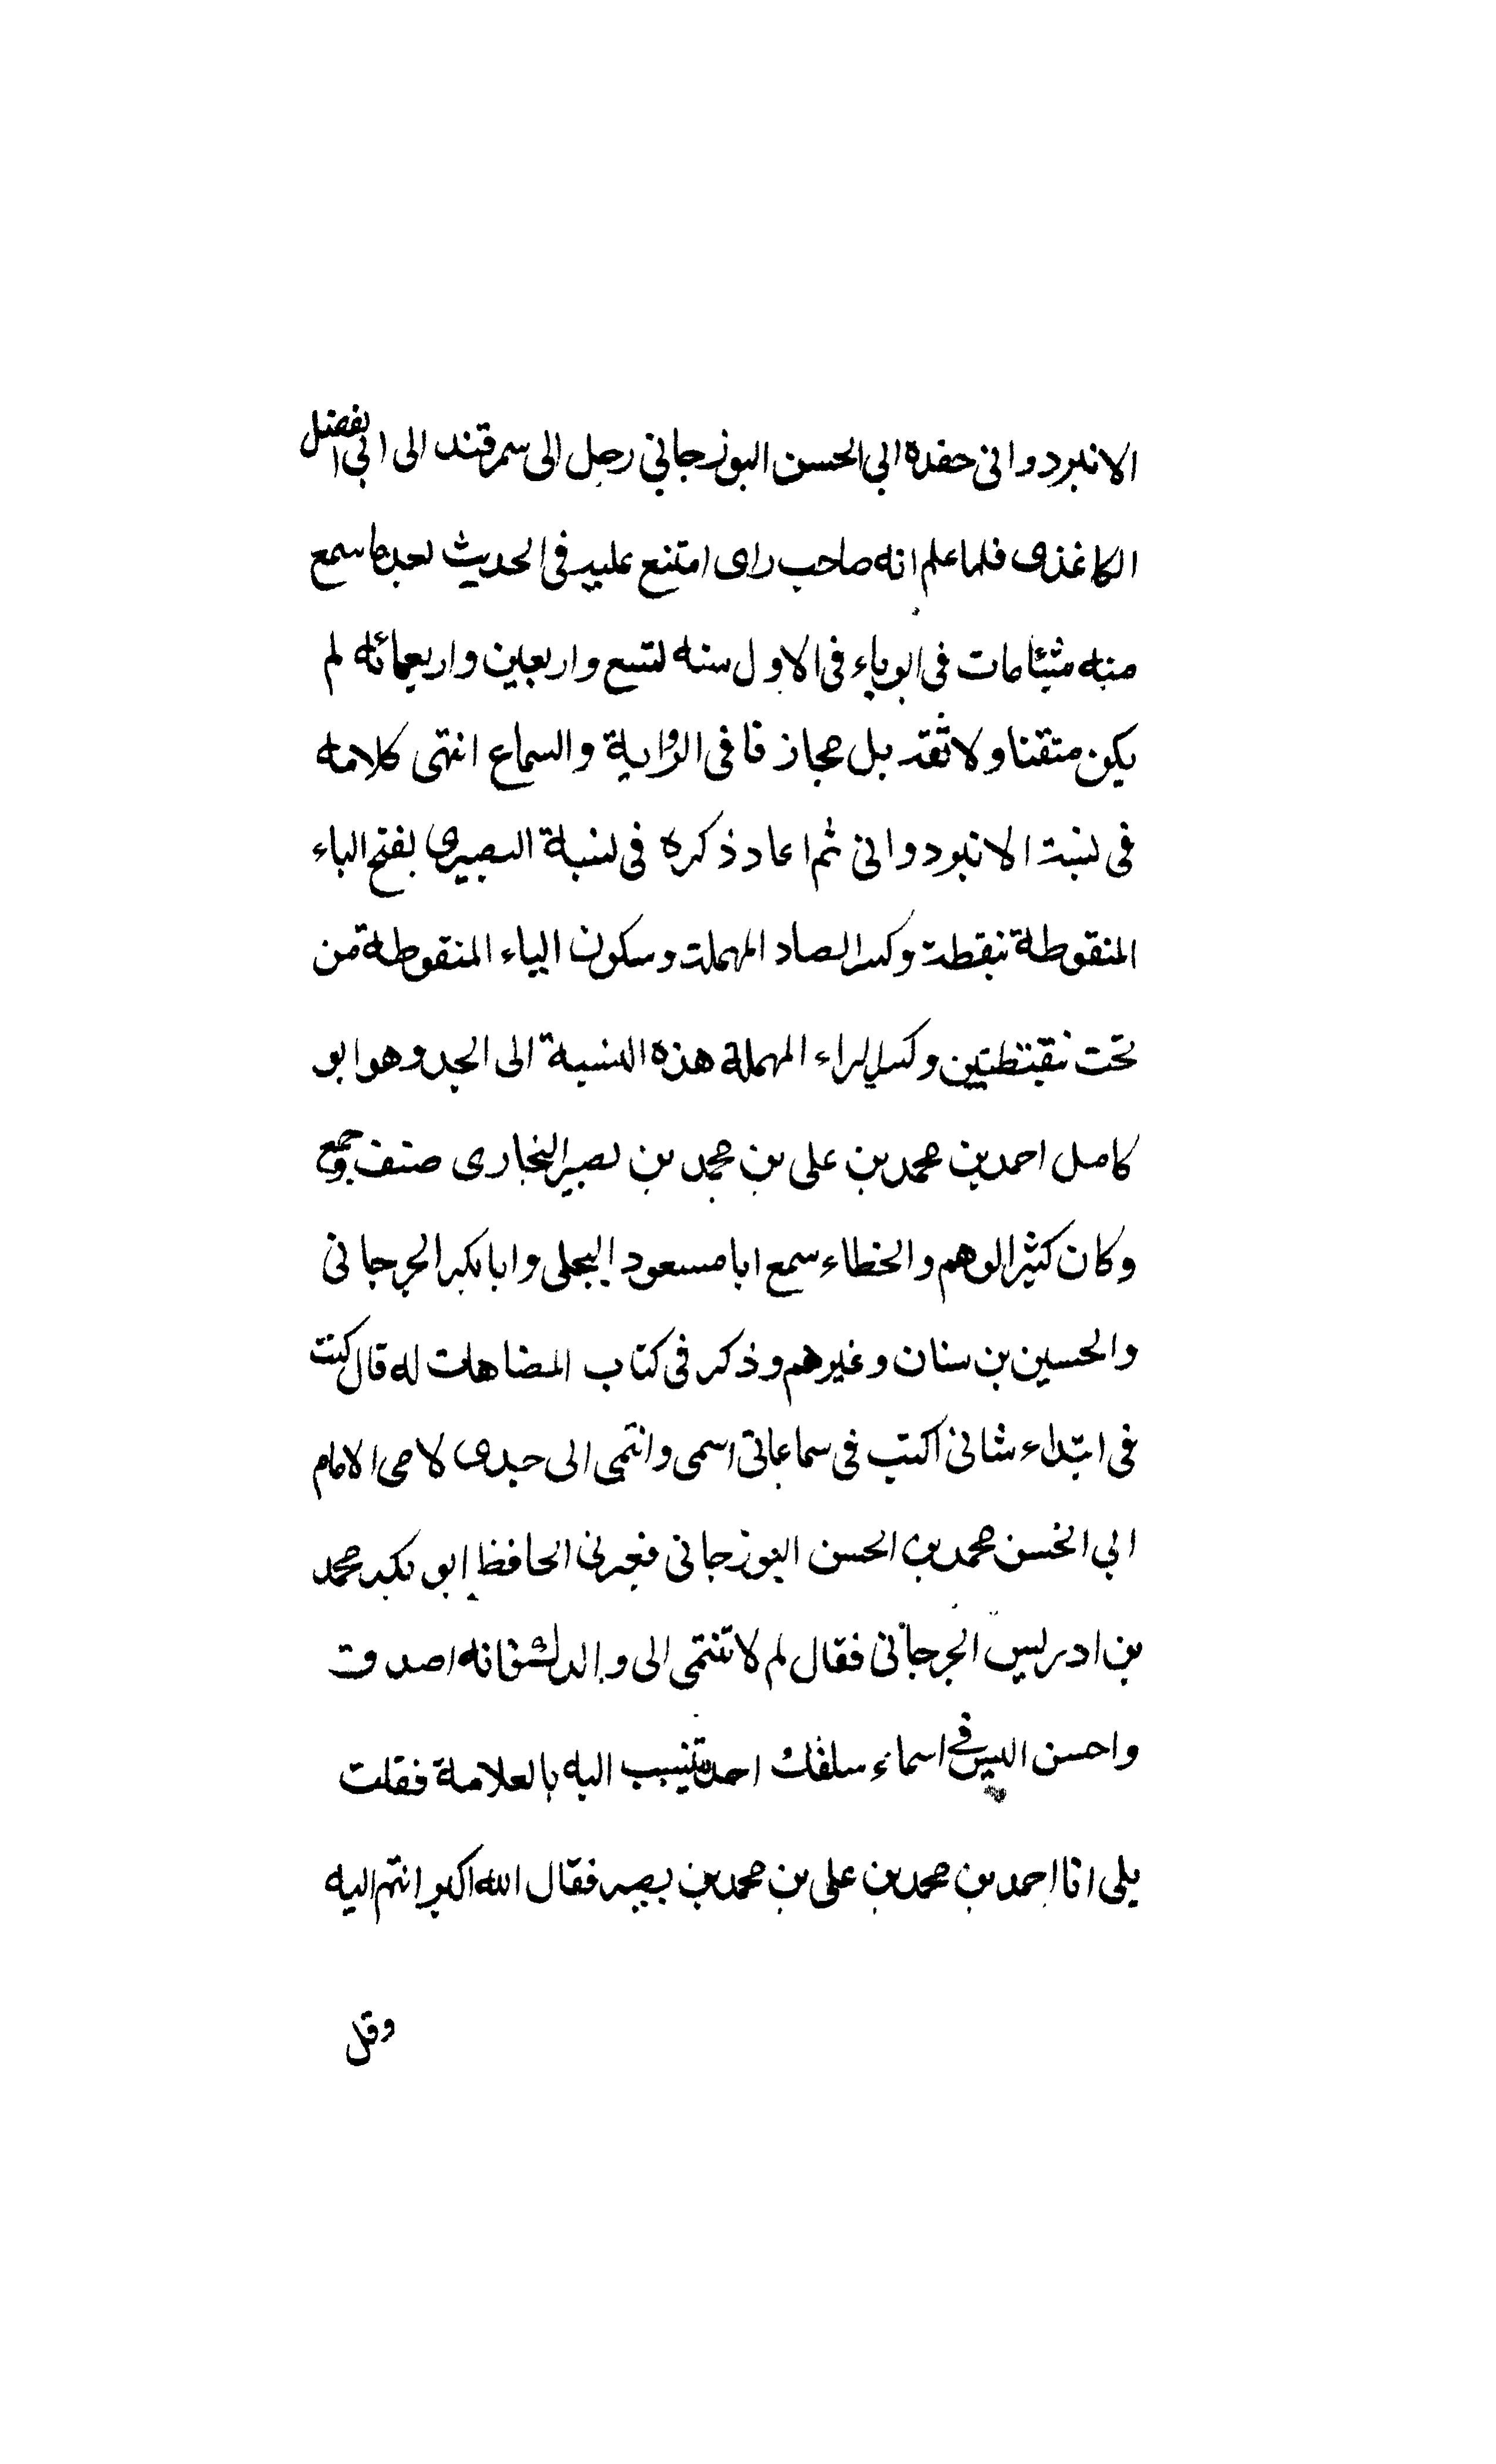 الاندبرد وانى حفدة ابي الحسن البوزجاني رحل الى سمرقند الى ابي الفضل
الكاغذى فلما علم انه صاحب راى امتنع عليه فى الحديث بعد ما سمع
منه شيئا مات فى ابوباء فى الاول سنه تسع واربعين واربعمائه لم
يكن متقنا ولا ثقة بل مجازفا فى الرواية والسماع انتهى كلامه
فى نسبة الاندبودوانى ثم اعاد ذكره فى نسبة البصيرى بفتح الباء
المنقوطة بنقطة وكسر الصاد المهملة وسكون الياء المنقوطة من
تحت بنقطتين وكسر الراء المهملة هذه النسبة الى الجد وهو ابو
كامل احمد بن محمد بن على بن محمد بن بصير البخارى صنف وجمع
وكان كثير الوهم والخطاء سمع ابا مسعود البجلى وابا بكر الجرجانى
والحسين بن سنان وغيرهم وذكر فى كتاب المضاهات له قال كنت
فى ابتداء شانى اكتب فى سماعاتى اسمى وانتمى الى جدى لامى الامام
ابي الحسن محمد بن الحسن البوزجانى فغيرنى الحافظ ابو بكر محمد
بن ادريس الجرجانى فقال لم لا تنتمى الى والدك فانه اصدق
واحسن اليس فى اسماء سلفك احد تنسب اليه بالعلامة فقلت
بلى انا احمد بن محمد بن على بن محمد بن بصير فقال الله اكبر انتم اليه
وقل